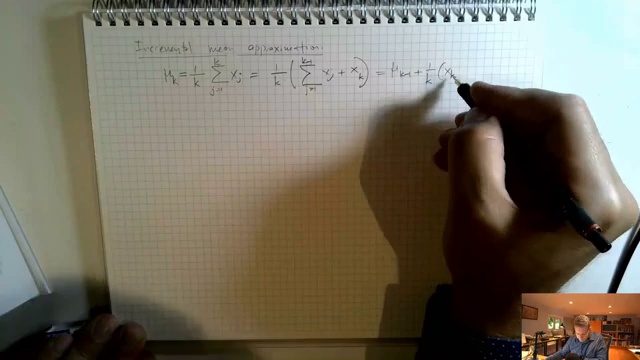 Incremental mean approximation
μ_k = 1/k ∑_{j=1}^{k} x_j = 1/k ( ∑_{j=1}^{k-1} x_j + x_k ) = μ_{k-1} + 1/k ( x_k